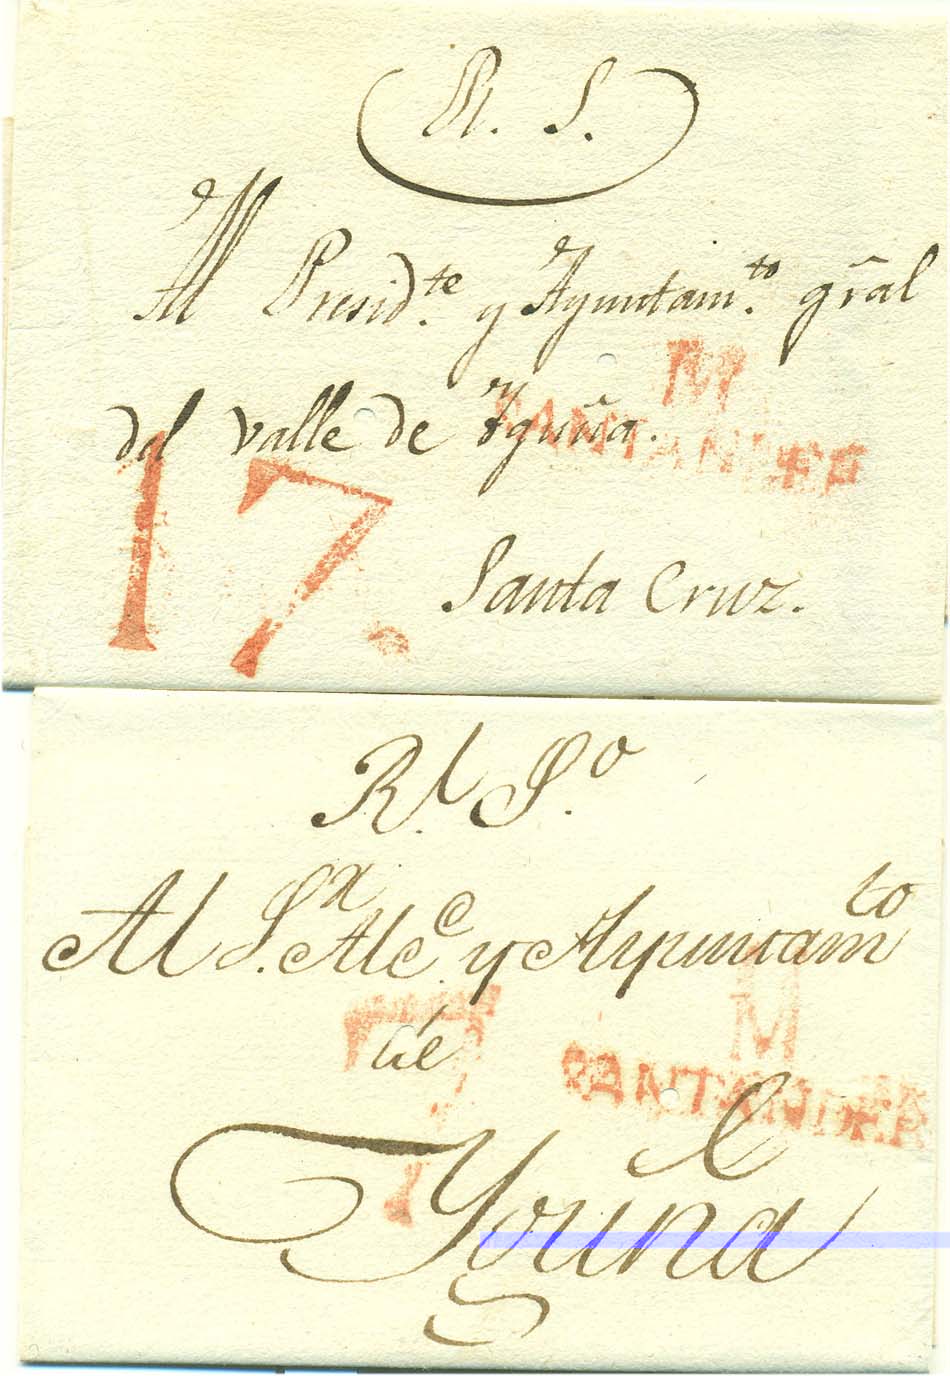 R. S.
Al Presid.te y Ayuntam.to gral
M
del valle de Yguña.
SANTANDER
17.
Santa Cruz.
R.l S.o
Al S.r Alc.e y Ayuntam.to
de
7
M
Yguña